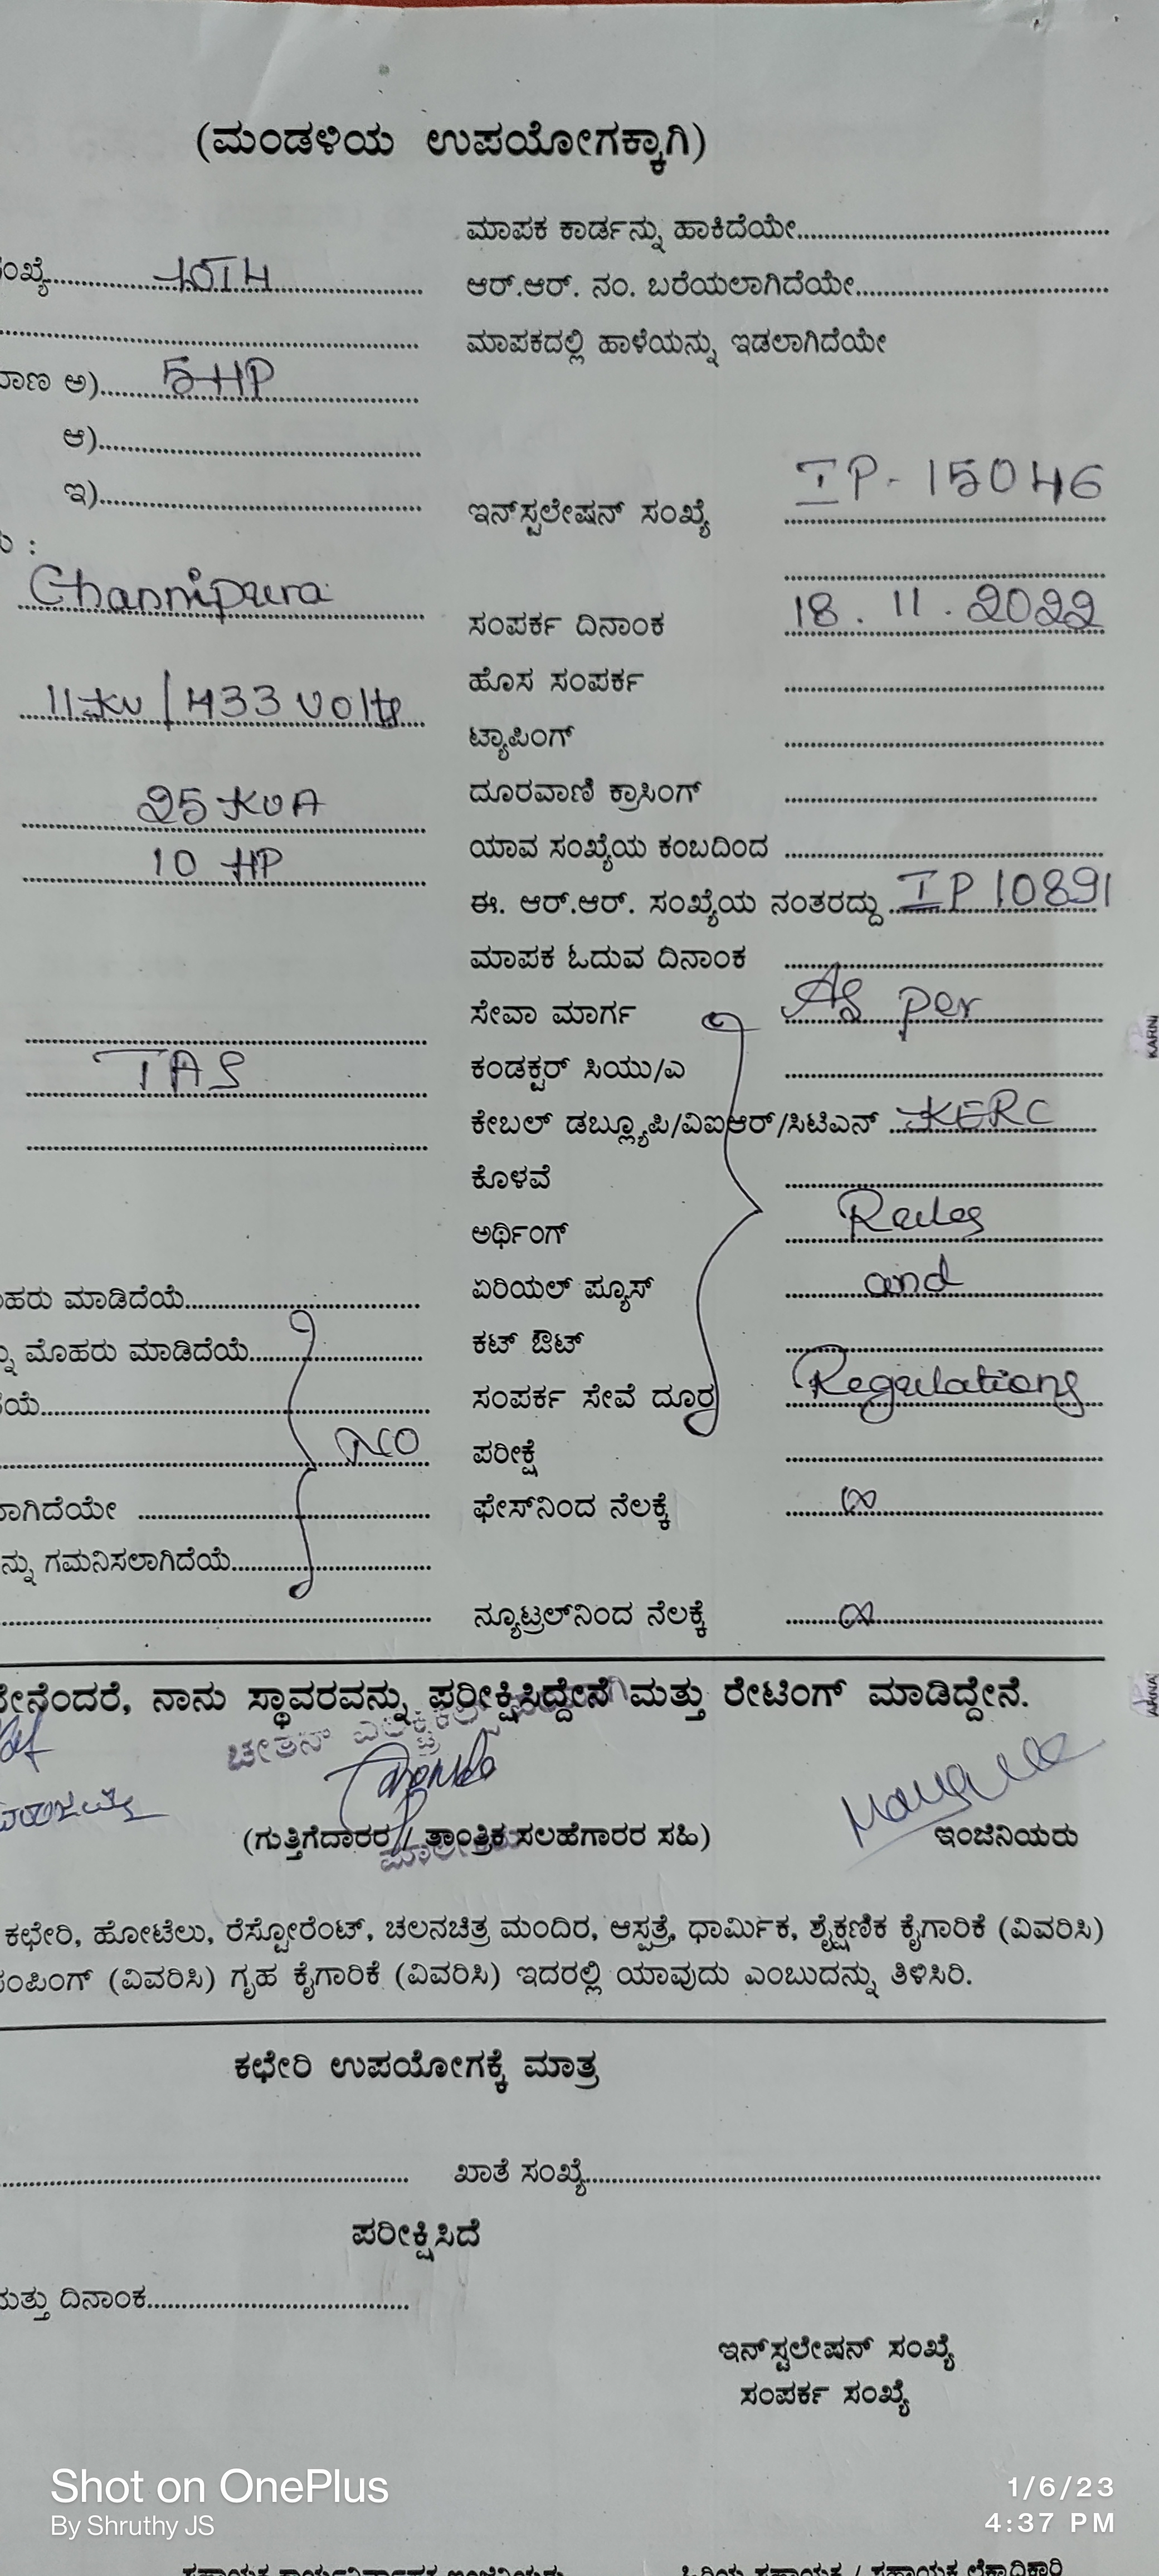 (ಮಂಡಳಿಯ ಉಪಯೋಗಕ್ಕಾಗಿ)
ಮಾಪಕ ಕಾರ್ಡನ್ನು ಹಾಕಿದೆಯೇ
ಆರ್.ಆರ್. ನಂ. ಬರೆಯಲಾಗಿದೆಯೇ
ಮಾಪಕದಲ್ಲಿ ಹಾಳೆಯನ್ನು ಇಡಲಾಗಿದೆಯೇ
ಅ) 5HP
ಆ)
ಇ)
ಇನ್‌ಸ್ಟಲೇಷನ್ ಸಂಖ್ಯೆ IP-15046
Channipura
ಸಂಪರ್ಕ ದಿನಾಂಕ 18.11.2022
ಹೊಸ ಸಂಪರ್ಕ
11kv/433 Volts
ಟ್ಯಾಪಿಂಗ್
ದೂರವಾಣಿ ಕ್ರಾಸಿಂಗ್
25 KVA
ಯಾವ ಸಂಖ್ಯೆಯ ಕಂಬದಿಂದ
10 HP
ಈ. ಆರ್.ಆರ್. ಸಂಖ್ಯೆಯ ನಂತರದ್ದು IP 10891
ಮಾಪಕ ಓದುವ ದಿನಾಂಕ
ಸೇವಾ ಮಾರ್ಗ As per
TAS
ಕಂಡಕ್ಟರ್ ಸಿಯು/ಎ
ಕೇಬಲ್ ಡಬ್ಲ್ಯೂಪಿ/ವಿಐಆರ್/ಸಿಟಿಎನ್ KERC
ಕೊಳವೆ
ಅರ್ಥಿಂಗ್ Rules
ಮಾಡಿದೆಯೆ
ಏರಿಯಲ್ ಪ್ಯೂಸ್ and
ಮೊಹರು ಮಾಡಿದೆಯೆ
ಕಟ್ ಔಟ್
ಸಂಪರ್ಕ ಸೇವೆ ದೂರ Regulations
NO
ಪರೀಕ್ಷೆ
ಫೇಸ್‌ನಿಂದ ನೆಲಕ್ಕೆ ∞
ಗಮನಿಸಲಾಗಿದೆಯೆ
ನ್ಯೂಟ್ರಲ್‌ನಿಂದ ನೆಲಕ್ಕೆ ∞
ನಾನು ಸ್ಥಾವರವನ್ನು ಪರೀಕ್ಷಿಸಿದ್ದೇನೆ ಮತ್ತು ರೇಟಿಂಗ್ ಮಾಡಿದ್ದೇನೆ.
ಚೇತನ್
(ಗುತ್ತಿಗೆದಾರರ / ತಾಂತ್ರಿಕ ಸಲಹೆಗಾರರ ಸಹಿ)
ಇಂಜಿನಿಯರು
ಕಛೇರಿ, ಹೋಟೆಲು, ರೆಸ್ಟೋರೆಂಟ್, ಚಲನಚಿತ್ರ ಮಂದಿರ, ಆಸ್ಪತ್ರೆ, ಧಾರ್ಮಿಕ, ಶೈಕ್ಷಣಿಕ ಕೈಗಾರಿಕೆ (ವಿವರಿಸಿ)
(ವಿವರಿಸಿ) ಗೃಹ ಕೈಗಾರಿಕೆ (ವಿವರಿಸಿ) ಇದರಲ್ಲಿ ಯಾವುದು ಎಂಬುದನ್ನು ತಿಳಿಸಿರಿ.
ಕಛೇರಿ ಉಪಯೋಗಕ್ಕೆ ಮಾತ್ರ
ಖಾತೆ ಸಂಖ್ಯೆ
ಪರೀಕ್ಷಿಸಿದೆ
ದಿನಾಂಕ
ಇನ್‌ಸ್ಟಲೇಷನ್ ಸಂಖ್ಯೆ
ಸಂಪರ್ಕ ಸಂಖ್ಯೆ
Shot on OnePlus
By Shruthy JS
1/6/23
4:37 PM